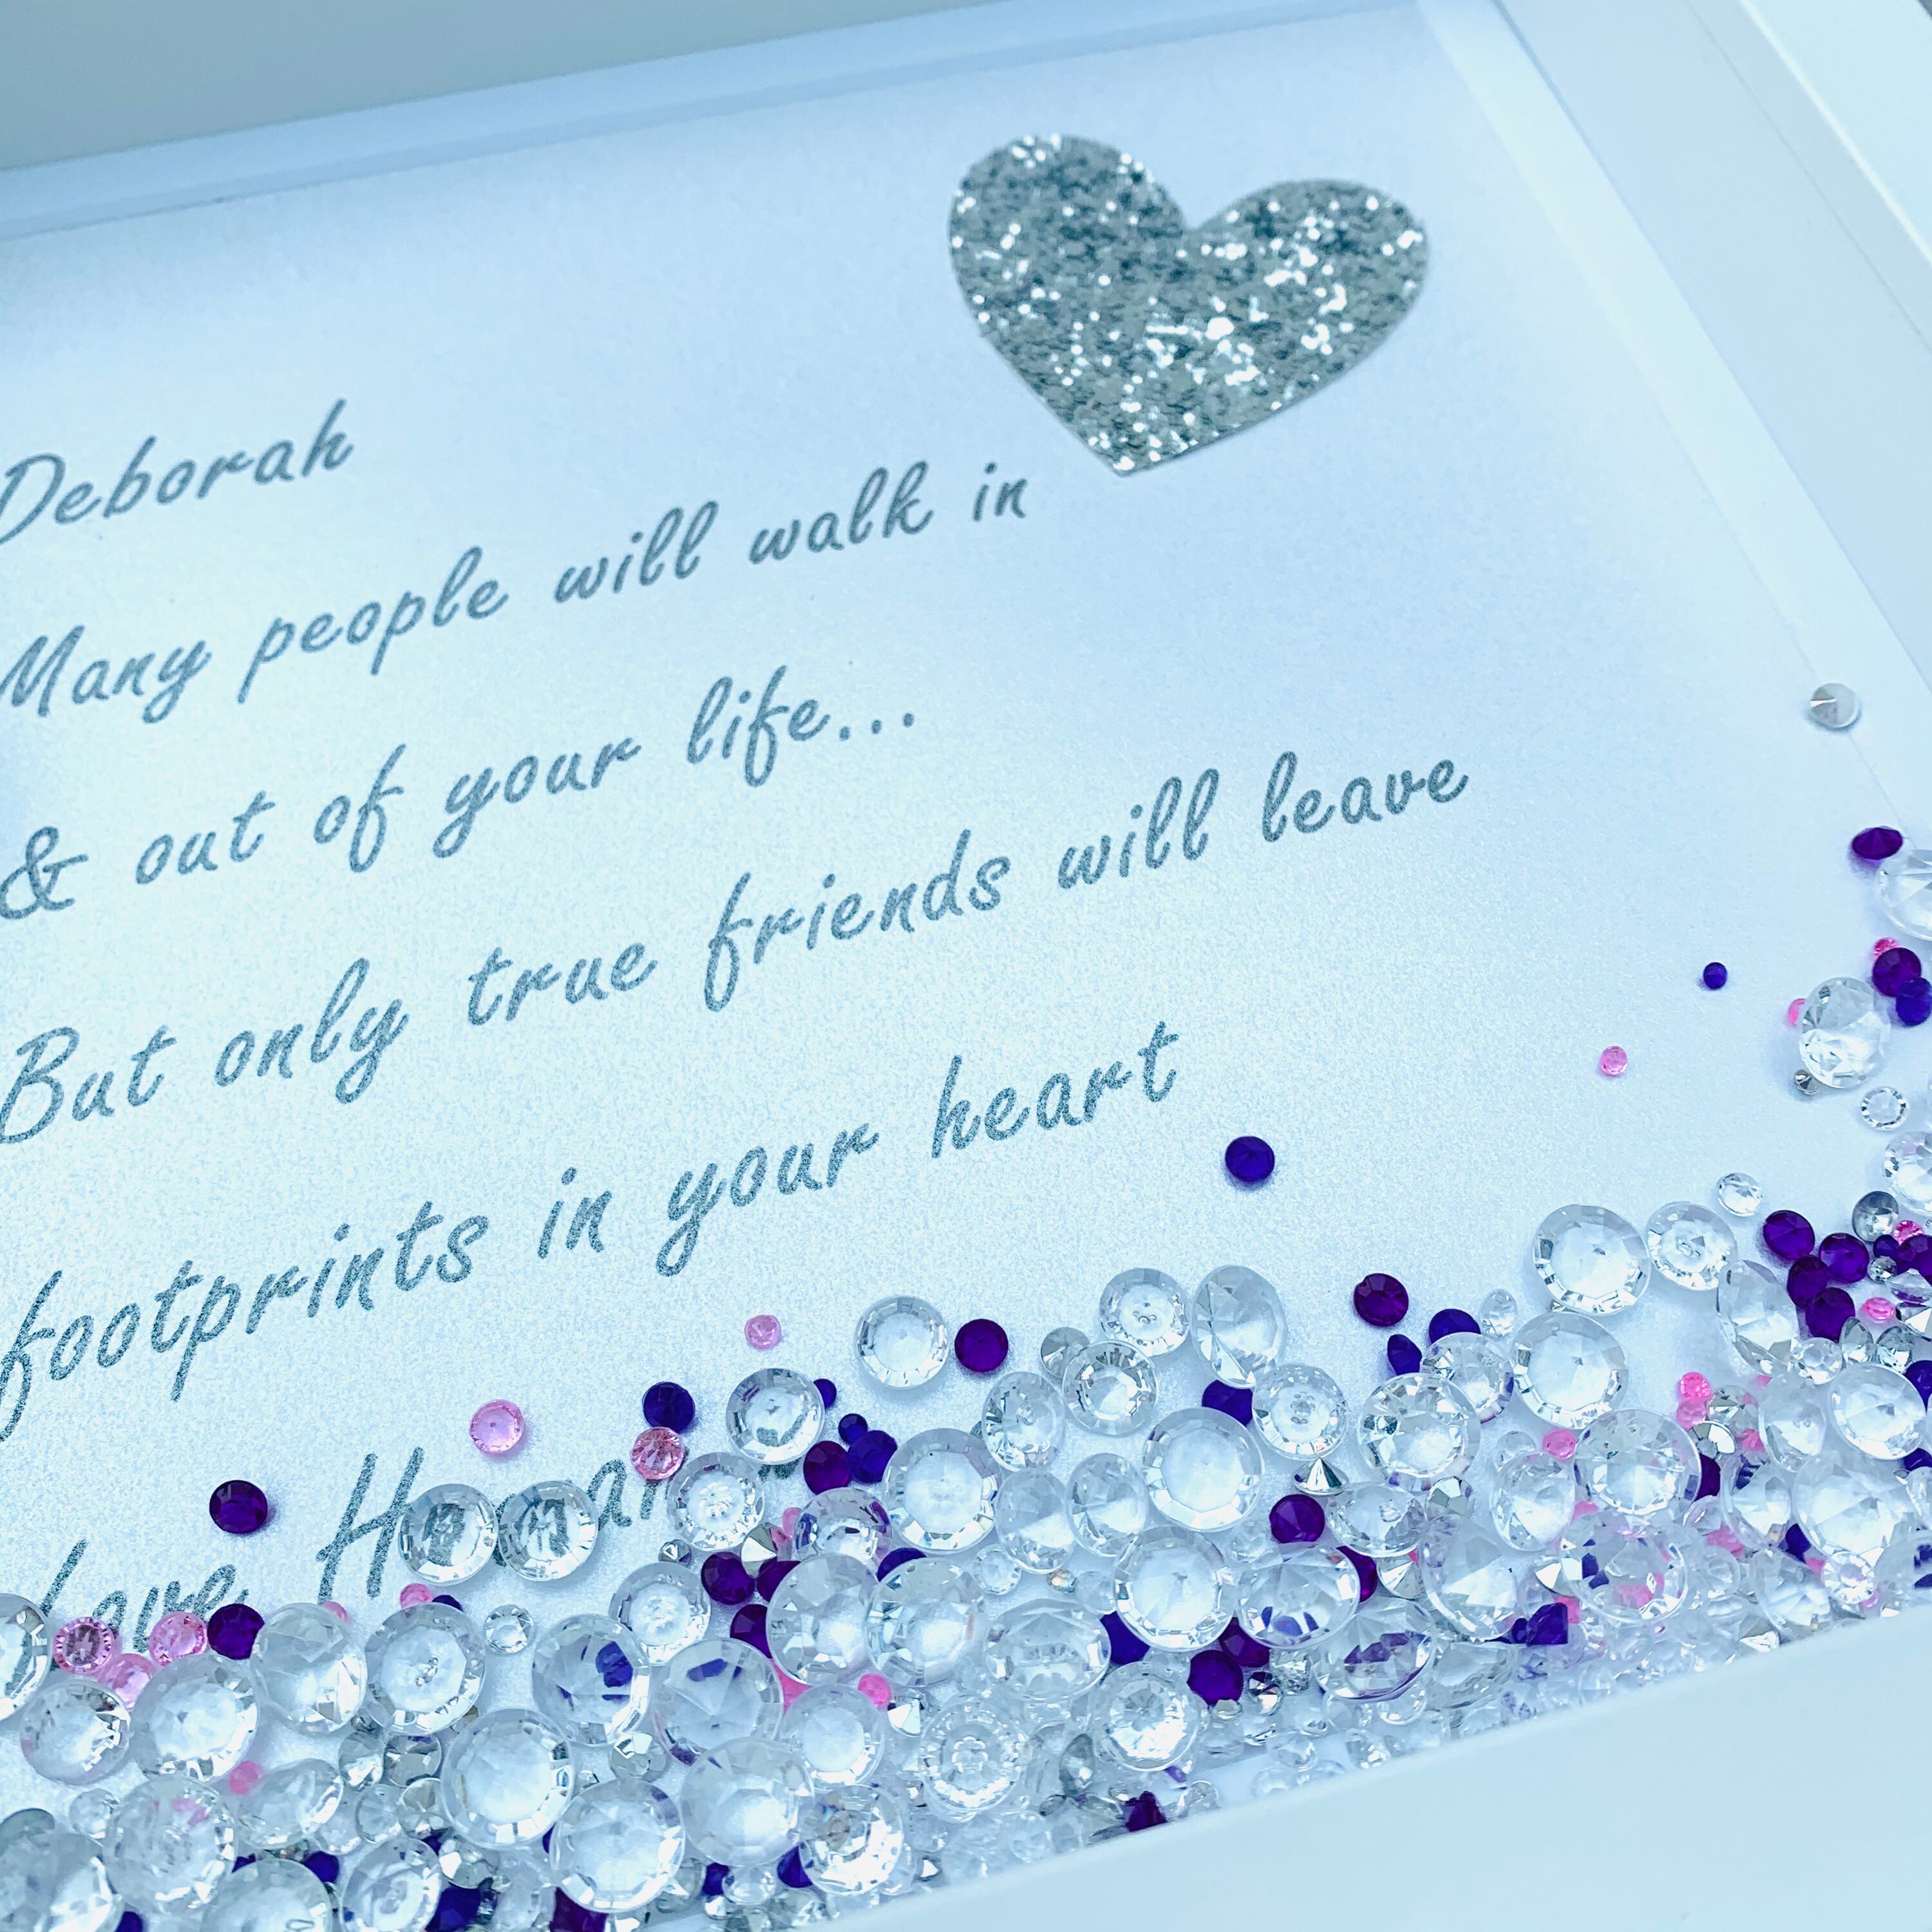 Deborah
Many people will walk in
& out of your life...
But only true friends will leave
footprints in your heart
Love